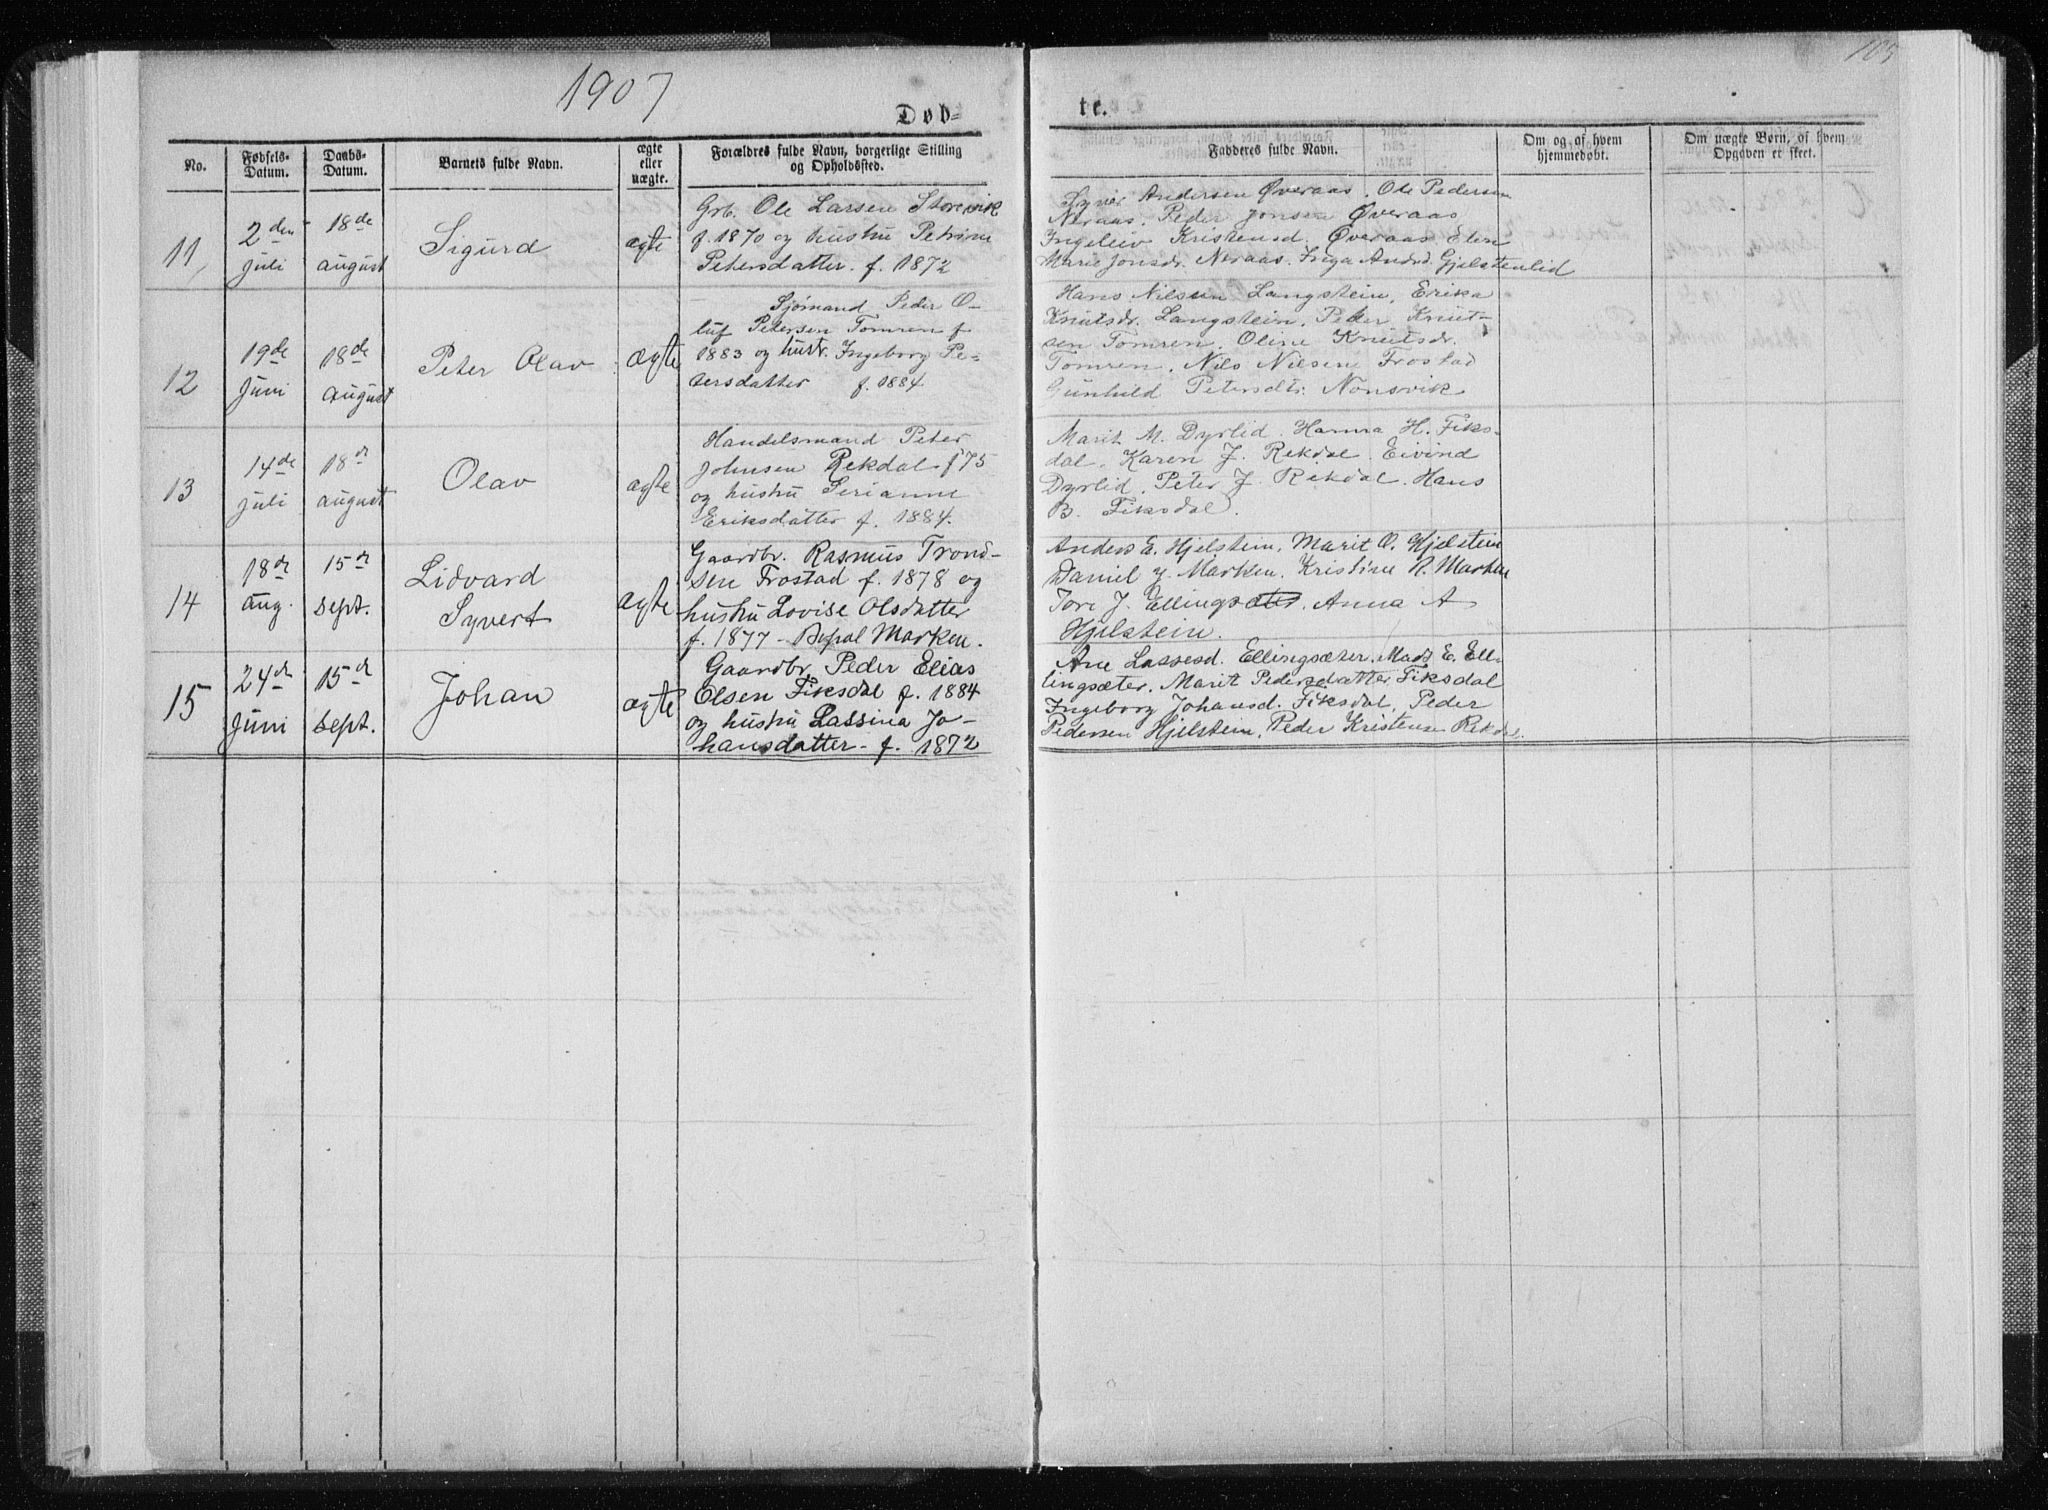 1907
105
Døb=
te.
No.
Fødsels-
Datum.
Daabs-
Datum.
Barnets fulde Navn.
ægte
eller
uægte.
Forældres fulde Navn, borgerlige Stilling
og Opholdssted.
Fadderes fulde Navn.
Om og af hvem
hjemmedøbt.
Om uægte Børn, af hvem
Opgaven er skeet.
11
2den
juli
18de
august
Sigurd
ægte
Grb. Ole Larsen Storevik
f. 1870 og hustru Petrine
Petersdatter. f. 1872
Syver Andersen Øveraas. Ole Pedersen
Neraas. Peder Jonsen Øveraas
Ingeleiv Kristensd. Øveraas. Elen
Marie Jonsdr. Neraas. Inga Andrd. Gjelstenlid
12
19de
juni
18de
august
Peter Olav
ægte
Sjømand Peder O-
luf Petersen Tomren f
1883 og hustr. Ingeborg Pe-
dersdatter f. 1884.
Hans Nilsen Langstein, Erika
Knutsdr. Langstein. Peter Knut-
sen Tomren. Oline Knutsdr.
Tomren. Nils Nilsen Frostad
Gunhild Petersdtr. Nonsvik
13
14de
juli
18de
august
Olav
ægte
Handelsmand Peter
Johnsen Rekdal f 75
og hustru Serianne
Eriksdatter f. 1884.
Marit M. Dyrlid. Hanna H. Fiks-
dal. Karen J. Rekdal. Eivind
Dyrlid. Peter J. Rekdal. Hans
B. Fiksdal.
14
18de
aug.
15de
sept.
Lidvard
Syvert
ægte
Gaardbr. Rasmus Trond-
sen Frostad f. 1878 og
hustru Lovise Olsdatter
f. 1877 - Bopal Marken.
Anders E. Hjelstein, Marit O. Hjelstein
Daniel J. Marken. Kristine R. Marken
Tore J. Ellingsæter. Anna A
Hjelstein.
15
24de
juni
15de
sept.
Johan
ægte
Gaardbr. Peder Elias
Olsen Fiksdal f. 1884
og hustru Lassina Jo-
hansdatter - f. 1872
Ane Lassesd. Ellingsæter. Mads E. Ell-
lingsæter. Marit Pedersdatter Fiksdal
Ingeborg Johansd. Fiksdal, Peder
Pedersen Hjelstein. Peder Kristensen Rekdal